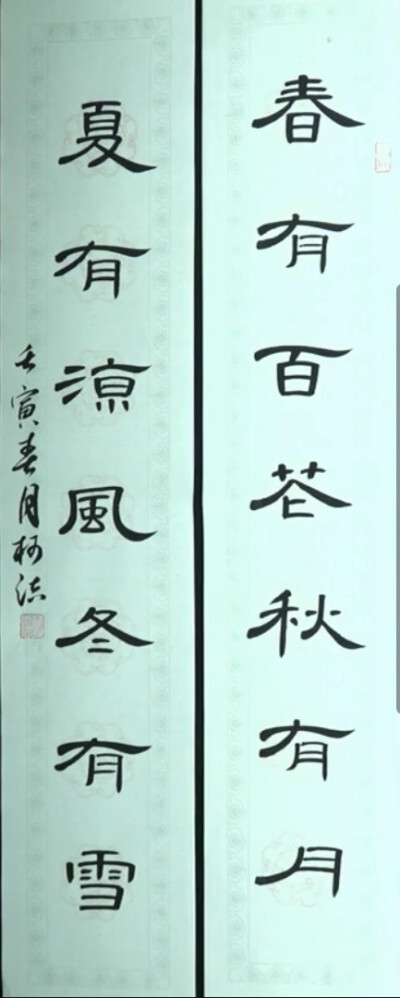 春有百花秋有月
夏有涼風冬有雪
壬寅春月柯法